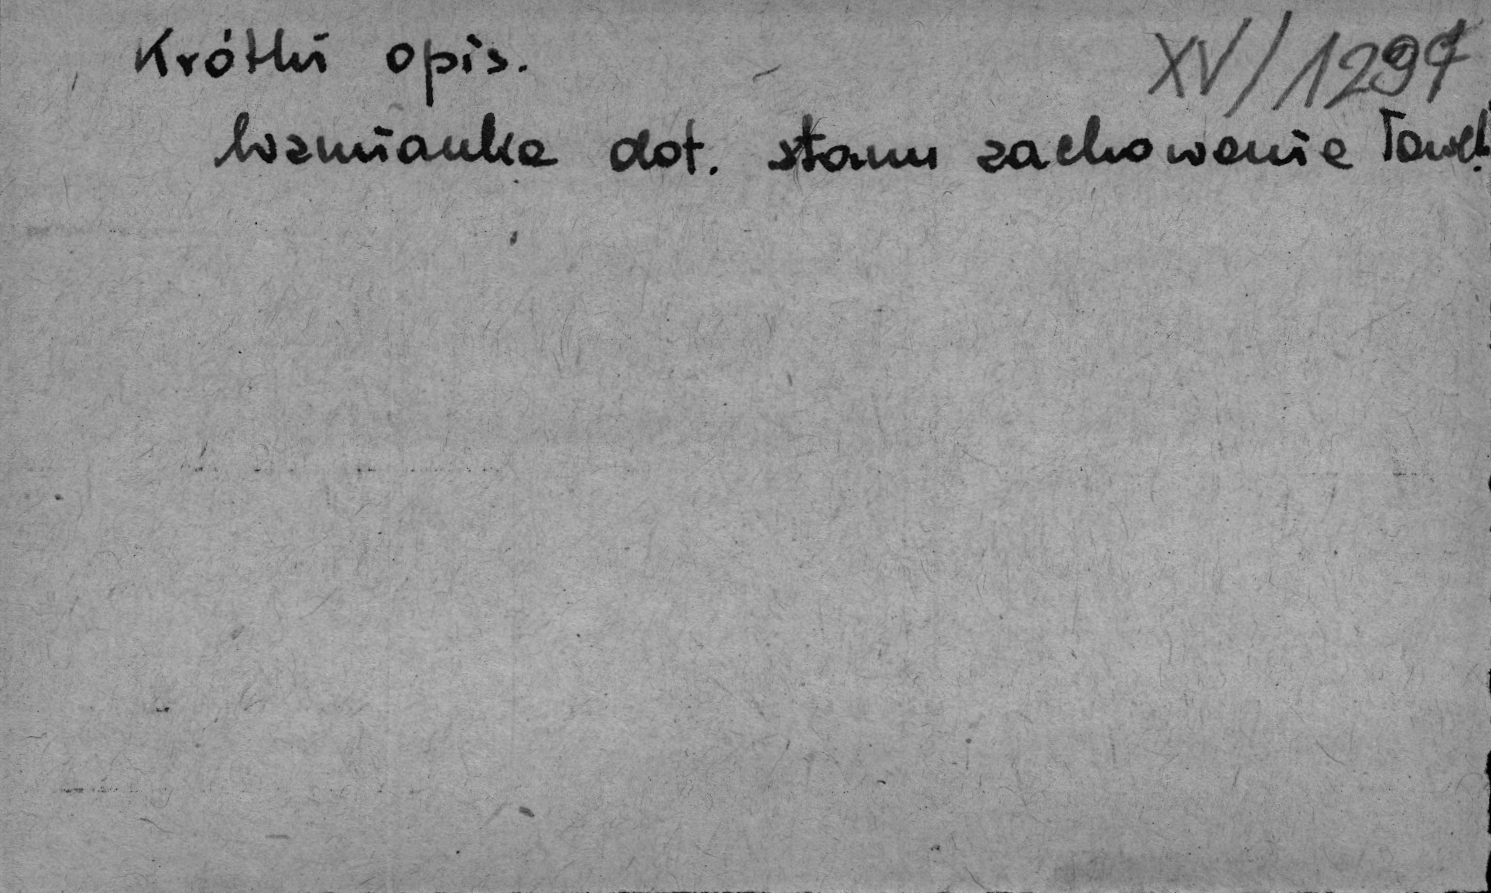 XV/1297
Krótki opis.
Wzmianka dot. stanu zachowania ławek.